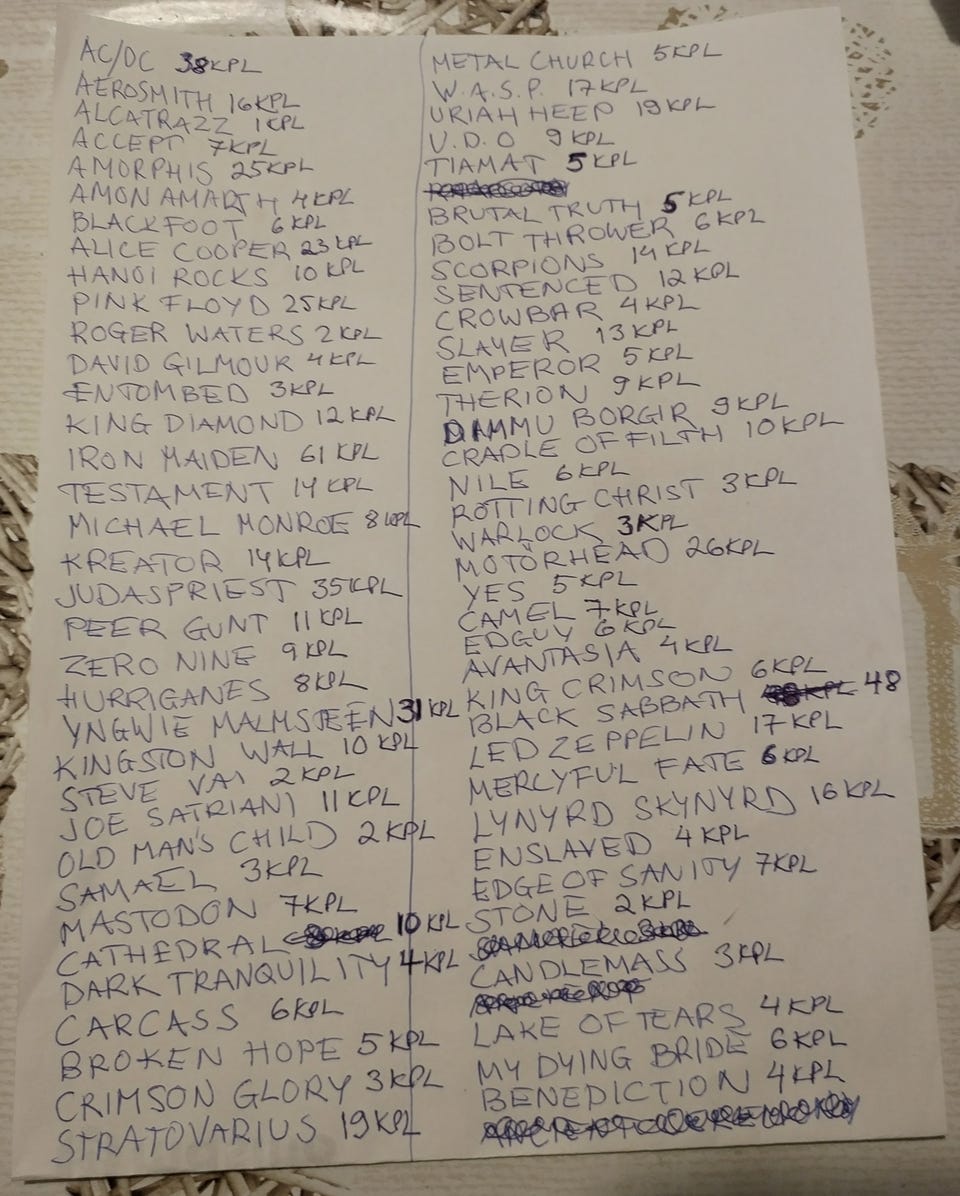 AC/DC 38KPL
AEROSMITH 16KPL
ALCATRAZZ 1KPL
ACCEPT 7KPL
AMORPHIS 25KPL
AMON AMARTH 4KPL
BLACKFOOT 6KPL
ALICE COOPER 23KPL
HANOI ROCKS 10KPL
PINK FLOYD 25KPL
ROGER WATERS 2KPL
DAVID GILMOUR 4KPL
ENTOMBED 3KPL
KING DIAMOND 12KPL
IRON MAIDEN 61KPL
TESTAMENT 14KPL
MICHAEL MONROE 8KPL
KREATOR 14KPL
JUDASPRIEST 35KPL
PEER GUNT 11KPL
ZERO NINE 9KPL
HURRIGANES 8KPL
YNGWIE MALMSTEEN 31KPL
KINGSTON WALL 10KPL
STEVE VAI 2KPL
JOE SATRIANI 11KPL
OLD MAN'S CHILD 2KPL
SAMAEL 3KPL
MASTODON 7KPL
CATHEDRAL 10KPL
DARK TRANQUILITY 4KPL
CARCASS 6KPL
BROKEN HOPE 5KPL
CRIMSON GLORY 3KPL
STRATOVARIUS 19KPL
METAL CHURCH 5KPL
W.A.S.P. 17KPL
URIAH HEEP 19KPL
U.D.O 9KPL
TIAMAT 5KPL
BRUTAL TRUTH 5KPL
BOLT THROWER 6KPL
SCORPIONS 14KPL
SENTENCED 12KPL
CROWBAR 4KPL
SLAYER 13KPL
EMPEROR 5KPL
THERION 9KPL
DIMMU BORGIR 9KPL
CRADLE OF FILTH 10KPL
NILE 6KPL
ROTTING CHRIST 3KPL
WARLOCK 3KPL
MOTÖRHEAD 26KPL
YES 5KPL
CAMEL 7KPL
EDGUY 6KPL
AVANTASIA 4KPL
KING CRIMSON 6KPL
BLACK SABBATH 48
LED ZEPPELIN 17KPL
MERCYFUL FATE 6KPL
LYNYRD SKYNYRD 16KPL
ENSLAVED 4KPL
EDGE OF SANITY 7KPL
STONE 2KPL
CANDLEMASS 3KPL
LAKE OF TEARS 4KPL
MY DYING BRIDE 6KPL
BENEDICTION 4KPL